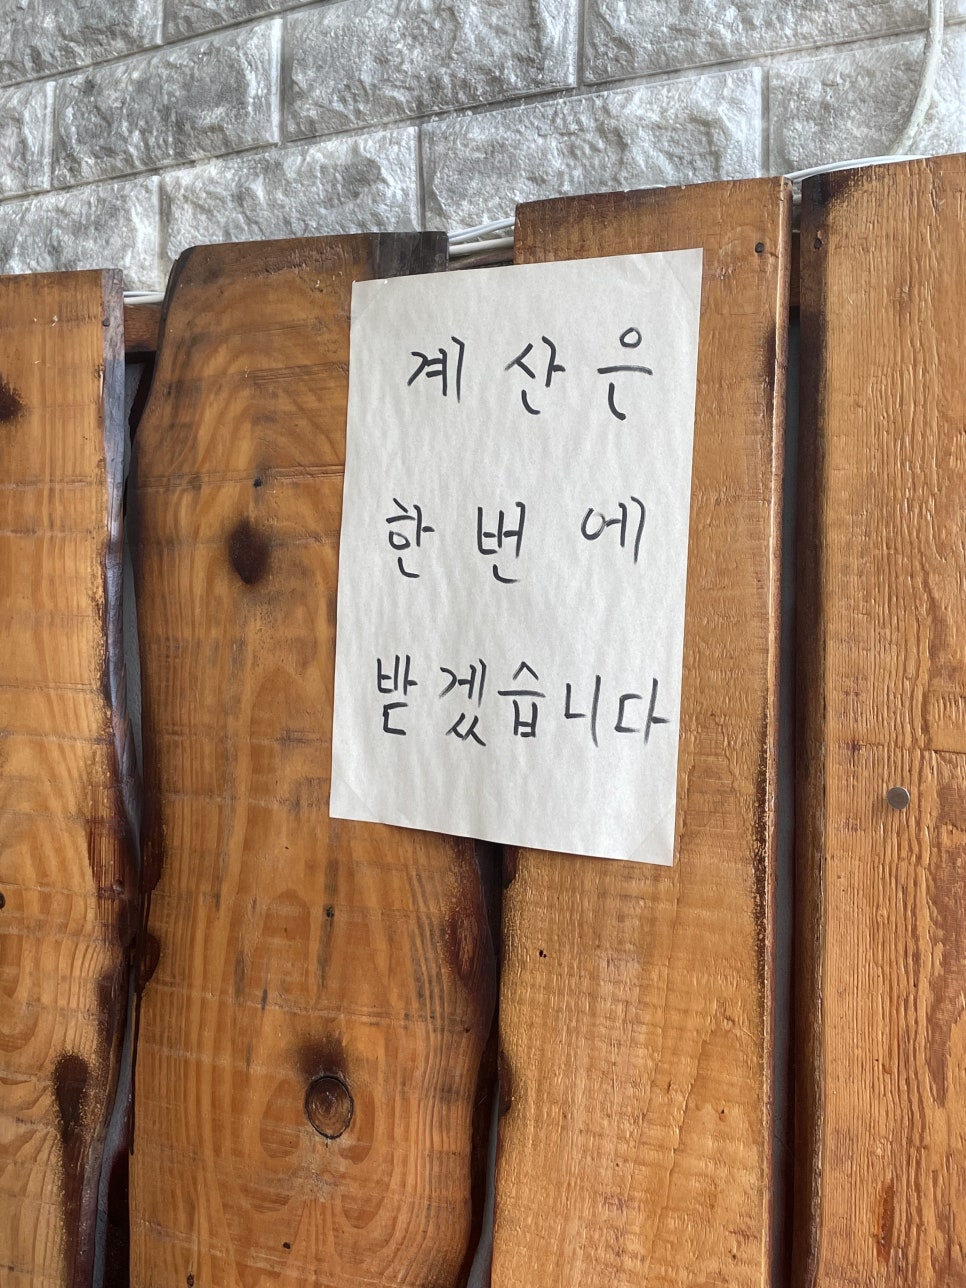 계산은
한번에
받겠습니다